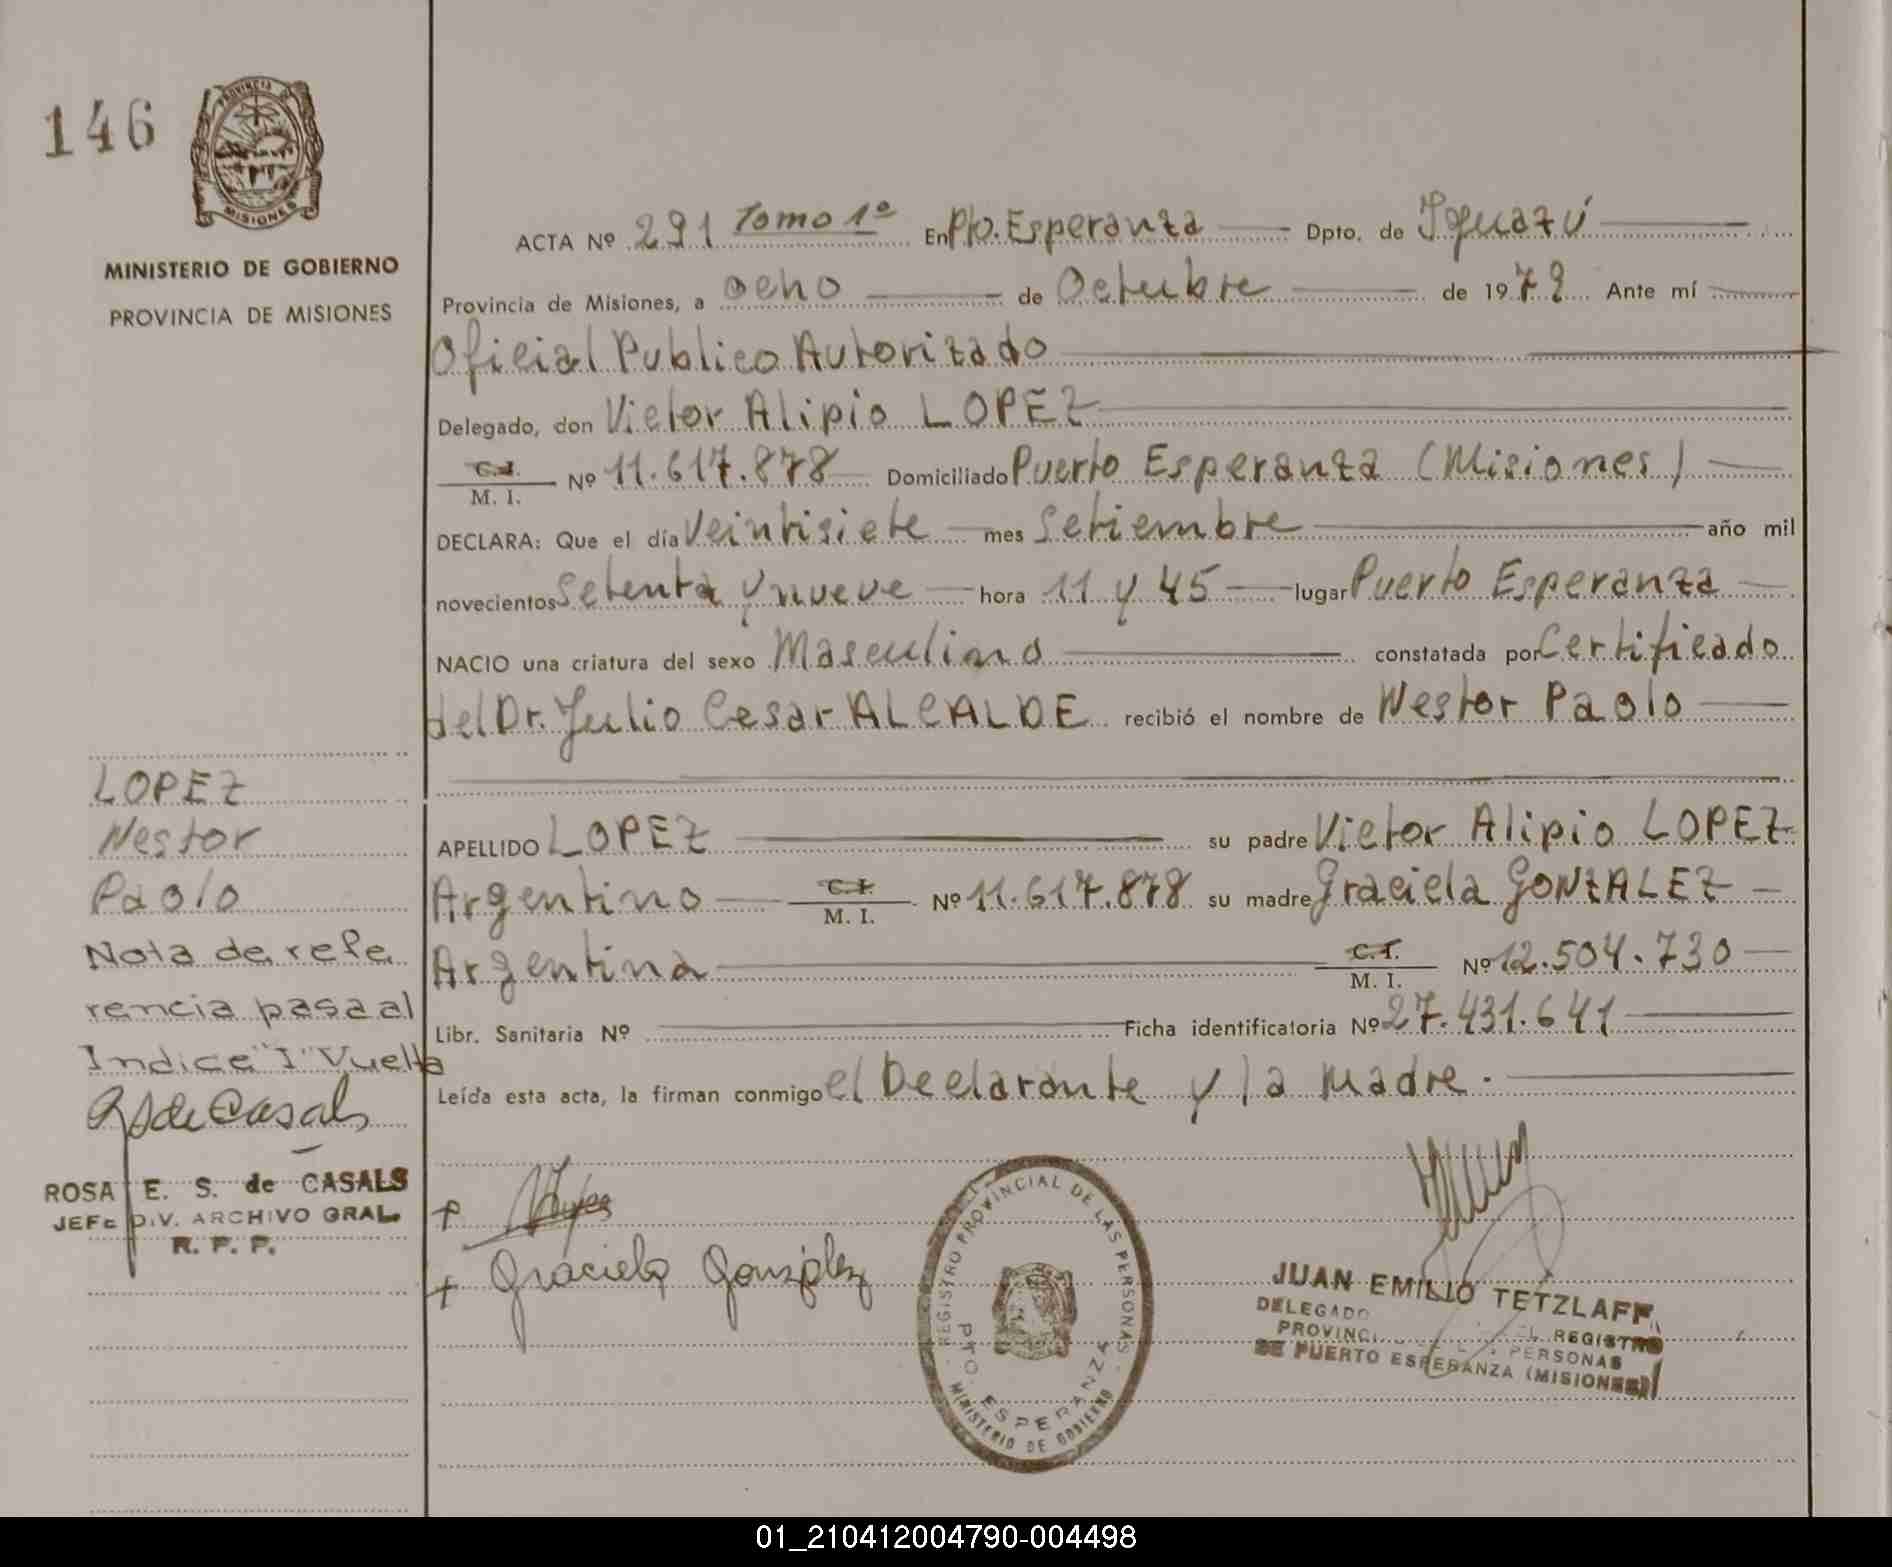 146
PROVINCIA DE
MISIONES
MINISTERIO DE GOBIERNO
PROVINCIA DE MISIONES
ACTA Nº 291 Tomo 1º En Pto. Esperanza Dpto. de Iguazú
Provincia de Misiones, a ocho de Octubre de 1979 Ante mí
Oficial Publico Autorizado
Delegado, don Victor Alipio LOPEZ
C.I. M. I. Nº 11.617.878 Domiciliado Puerto Esperanza (Misiones)
DECLARA: Que el día Veintisiete mes Setiembre año mil
novecientos Setenta y nueve hora 11 y 45 lugar Puerto Esperanza
NACIO una criatura del sexo Masculino constatada por Certificado
del Dr. Julio Cesar ALCALDE recibió el nombre de Nestor Paolo
APELLIDO LOPEZ su padre Victor Alipio LOPEZ
Argentino C.I. M. I. Nº 11.617.878 su madre Graciela GONZALEZ
Argentina C.I. M. I. Nº 12.504.730
Libr. Sanitaria Nº Ficha identificatoria Nº 27.431.641
Leída esta acta, la firman conmigo el Declarante y la Madre.
LOPEZ
Nestor
Paolo
Nota de refe
rencia pasa al
Indice "I" Vuelta
RSdeCasals
ROSA E. S. de CASALS
JEFE DIV. ARCHIVO GRAL.
R. P. P.
Graciela González
REGISTRO PROVINCIAL DE LAS PERSONAS
PTO. ESPERANZA
MINISTERIO DE GOBIERNO
JUAN EMILIO TETZLAFF
DELEGADO
PROVINCI REGISTRO
PERSONAS
DE PUERTO ESPERANZA (MISIONES)
01_210412004790-004498